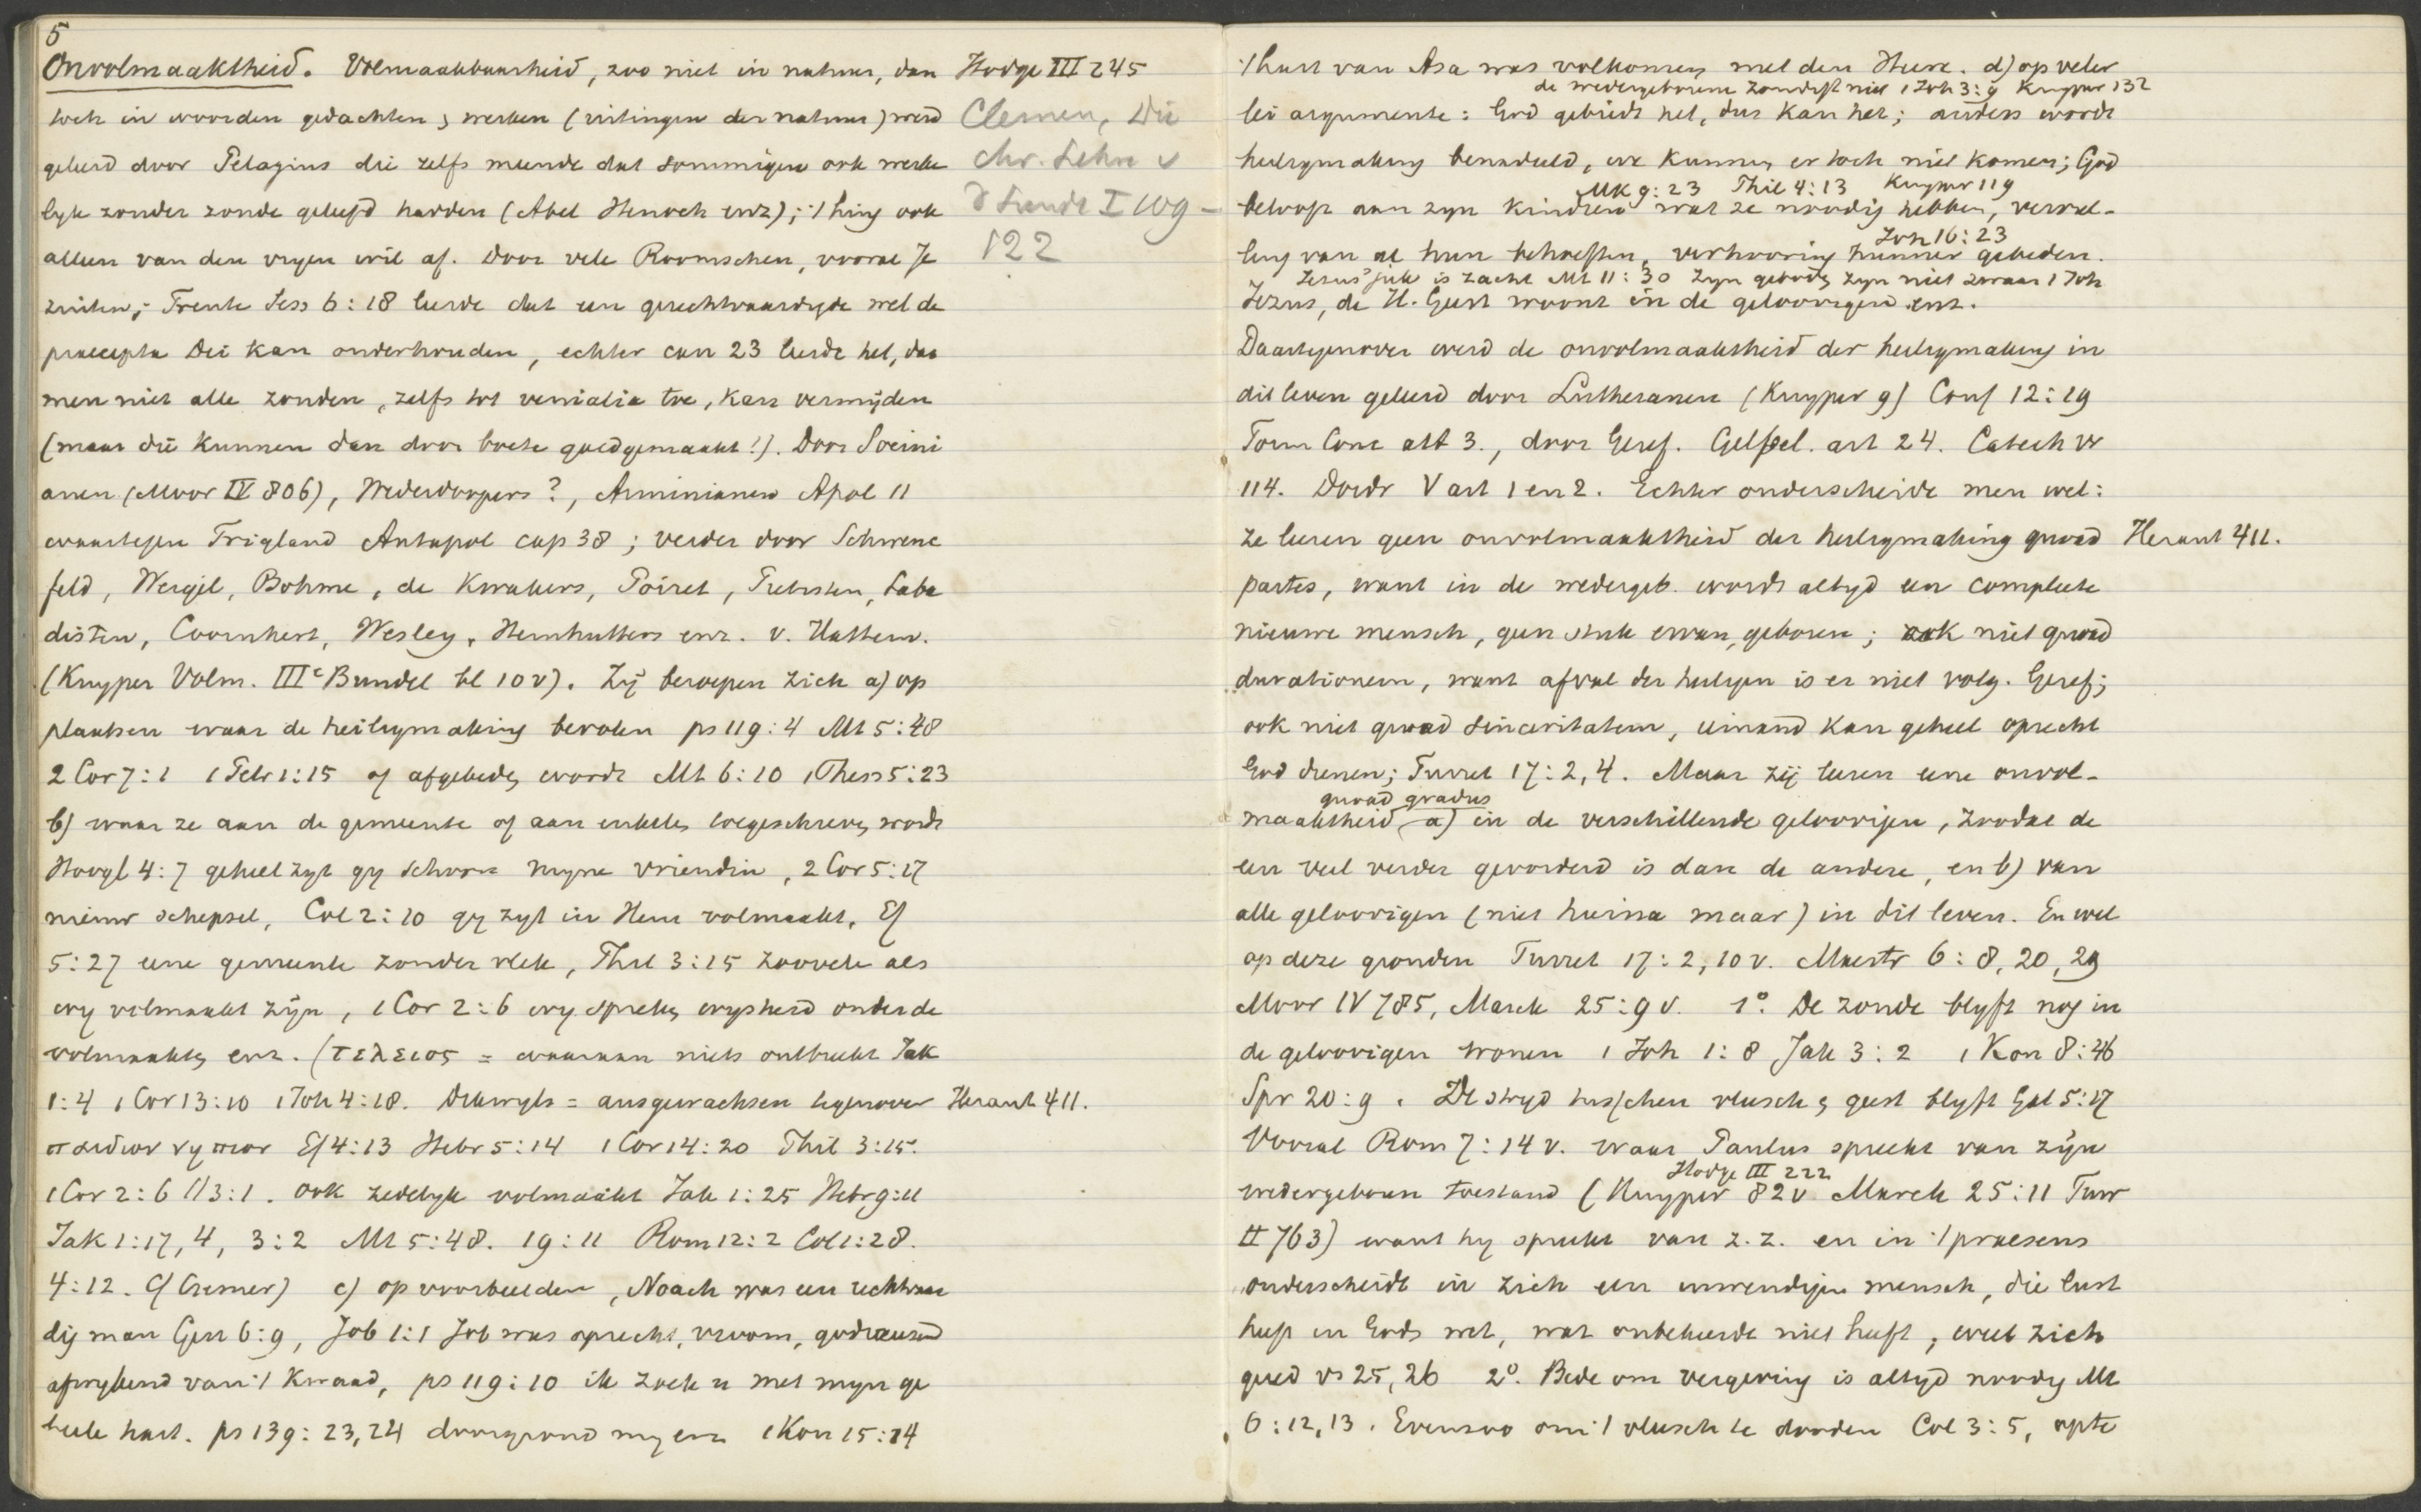 5
Onvolmaaktheid. Volmaakbaarheid, zoo niet in natuur, dan
toch in woorden gedachten & werken (uitingen der natuur) werd
geleerd door Pelagius die zelfs meende dat sommigen ook werke
lijk zonder zonde geleefd hadden (Abel Henoch enz); 't hing ook
alleen van den vryen wil af. Door vele Roomschen, vooral Je
zuiten; Trente Sess 6:18 leerde dat een gerechtvaardigde wel de
praecepta Dei kan onderhouden, echter can 23 leerde het, dat
men niet alle zonden, zelfs tot venialia toe, kan vermijden
(maar die kunnen dan door boete goedgemaakt!). Door Socini
anen (Moor IV 806), Wederdoopers?, Arminianen Apol 11
waartegen Trigland Antapol cap 38; verder door Schwenc
feld, Weigel, Bohme, de Kwakers, Poiret, Pietisten, Laba
disten, Coornhert, Wesley, Hernhutters enz. v. Hattem.
(Kuyper Volm. IIIe Bundel bl 10 v). Zij beroepen zich a) op
plaatsen waar de heiligmaking bevolen ps 119:4 Mt 5:48
2 Cor 7:1 1 Petr 1:15 of afgebeden wordt Mt 6:10 1 Thess 5:23
b) waar ze aan de gemeente of aan enkelen toegeschreven wordt
Hoogl 4:7 geheel zyt gy schoon myne vriendin, 2 Cor 5:17
nieuw schepsel, Col 2:10 gy zyt in Hem volmaakt, Ef
5:27 eene gemeente zonder vlek, Phil 3:15 zoovele als
wy volmaakt zijn, 1 Cor 2:6 wy spreken wysheid onder de
volmaakten enz. (τελειος = waaraan niets ontbreekt Jak
1:4 1 Cor 13:10 1 Joh 4:18. Dikwyls = ausgewachsen tegenover
παιδιον νηπιον Ef 4:13 Hebr 5:14 1 Cor 14:20 Phil 3:15.
1 Cor 2:6 // 3:1. ook zedelyk volmaakt Jak 1:25 Hebr 9:11
Jak 1:17, 4, 3:2 Mt 5:48. 19:11 Rom 12:2 Col 1:28.
4:12. Cf Cremer) c) op voorbeelden, Noach was een rechtvaar
dig man Gen 6:9, Job 1:1 Job was oprecht, vroom, godvreezend
afwykend van 't kwaad, ps 119:10 ik zoek u met myn ge
heele hart. ps 139:23,24 doorgrond my enz 1 Kon 15:14
Hodge III 245
Clemen, Die
chr. Lehre v
d Sunde I 109 –
122
Heraut 411.
't hart van Asa was volkomen met den Heere. d) op veler
de wedergeborene zondigt niet 1 Joh 3:9 Kuyper 132
lei argumenten: God gebiedt het, dus kan het; anders wordt
heiligmaking benadeeld, we kunnen er toch niet komen; God
Mk 9:23 Phil 4:13 Kuyper 119
belooft aan zyn kinderen wat ze noodig hebben, vervul-
Joh 16:23
ling van al hun behoeften, verhooring hunner gebeden.
Jezus' juk is zacht Mt 11:30 Zyn geboden zyn niet zwaar 1 Joh
Jezus, de H. Geest woont in de geloovigen enz.
Daartegenover werd de onvolmaaktheid der heiligmaking in
dit leven geleerd door Lutheranen (Kuyper 9) Conf 12:19
Form Conc art 3., door Geref. Gelfbel. art 24. Catech vr
114. Dordr V art 1 en 2. Echter onderscheide men wel:
ze leeren geen onvolmaaktheid der heiligmaking quoad
partes, want in de wedergeb. wordt altyd een compleete
nieuwe mensch, geen stuk ervan, geboren; ook niet quoad
durationem, want afval der heiligen is er niet volg. Geref;
ook niet quoad sinceritatem, iemand kan geheel oprecht
God dienen; Turret 17:2,4. Maar zij leeren eene onvol-
quoad gradus
maaktheid a) in de verschillende geloovigen, zoodat de
een veel verder gevorderd is dan de andere, en b) van
alle geloovigen (niet hierna maar) in dit leven. En wel
op deze gronden Turret 17:2,10 v. Maestr 6:8,20,29
Moor IV 785, Marck 25:9 v. 1° De zonde blyft nog in
de geloovigen wonen 1 Joh 1:8 Jak 3:2 1 Kon 8:46
Spr 20:9. De stryd tusschen vleesch & geest blyft Gal 5:17
Vooral Rom 7:14 v. waar Paulus spreekt van zijn
Hodge III 222
wedergeboren toestand (Kuyper 82 v Marck 25:11 Turr
II 763) want hy spreekt van z.z. en in 't praesens
onderscheidt in zich een inwendigen mensch, die lust
heeft in Gods wet, wat onbekeerde niet heeft, weet zich
gered vs 25,26 2°. Bede om vergeving is altyd noodig Mt
6:12,13. Evenzoo om 't vleesch te dooden Col 3:5, opte
Heraut 411.